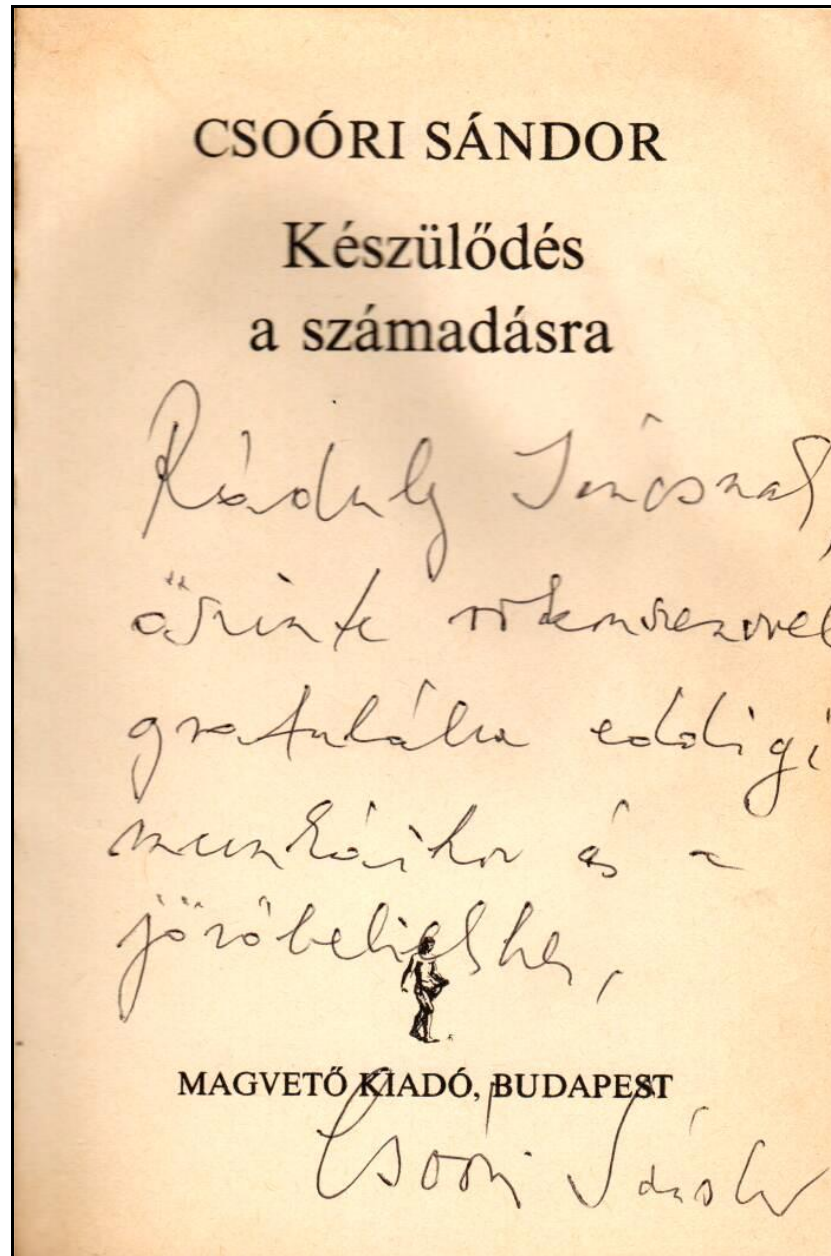 CSOÓRI SÁNDOR
Készülődés
a számadásra
Ráduly Jánosnak,
őszinte rokonszenvvel
gratulálva eddigi
munkáihoz és a
jövőbeliekhez,
MAGVETŐ KIADÓ, BUDAPEST
Csoóri Sándor